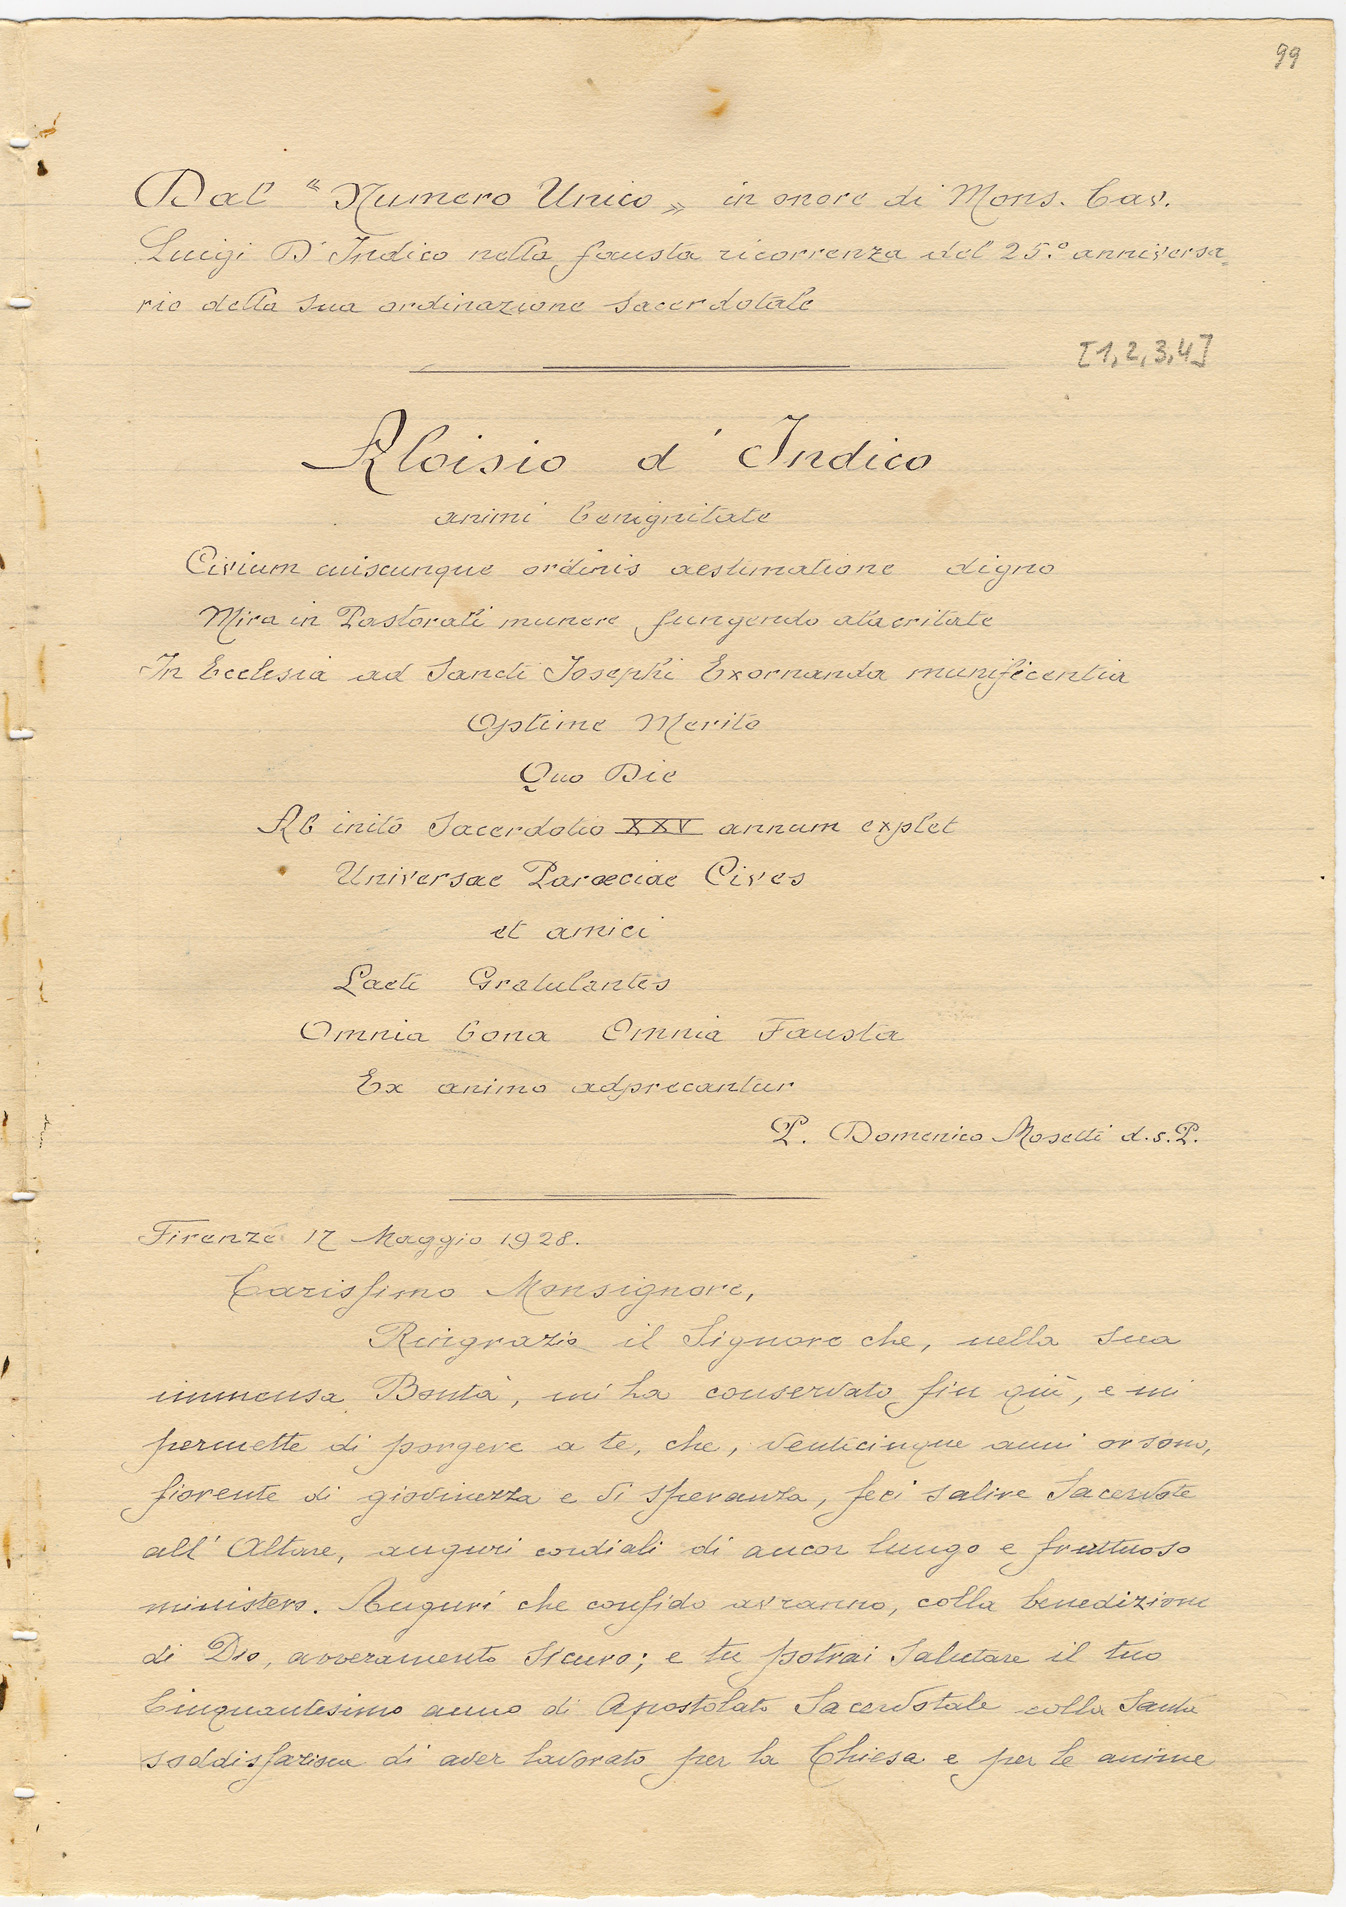 99
Dal "Numero Unico„ in onore di Mons. Cav.
Luigi D'Indico nella fausta ricorrenza del 25.° anniversa-
rio della sua ordinazione sacerdotale
[1,2,3,4]
Aloisio d'Indico
animi benignitate
Civium cuiscunque ordinis aestimatione digno
Mira in Pastorali munere fungendo alacritate
In Ecclesia ad Sancti Josephi Exornanda munificentia
Optime Merito
Quo Die
Ab inito Sacerdotio XXV annum explet
Universae Parœciae Cives
et amici
Laeti Gratulantes
Omnia bona Omnia Fausta
Ex animo adprecantur
P. Domenico Mosetti d.s.P.
Firenze 17 Maggio 1928.
Carissimo Monsignore,
Ringrazio il Signore che, nella sua
immensa Bontà, mi ha conservato fin quì, e mi
permette di porgere a te, che, venticinque anni or sono,
fiorente di giovinezza e di speranza, feci salire Sacerdote
all'Altare, auguri cordiali di ancor lungo e fruttuoso
ministero. Auguri che confido avranno, colla benedizione
di Dio, avveramento sicuro; e tu potrai salutare il tuo
Cinquantesimo anno di Apostolato Sacerdotale colla Santa
soddisfazione di aver lavorato per la Chiesa e per le anime